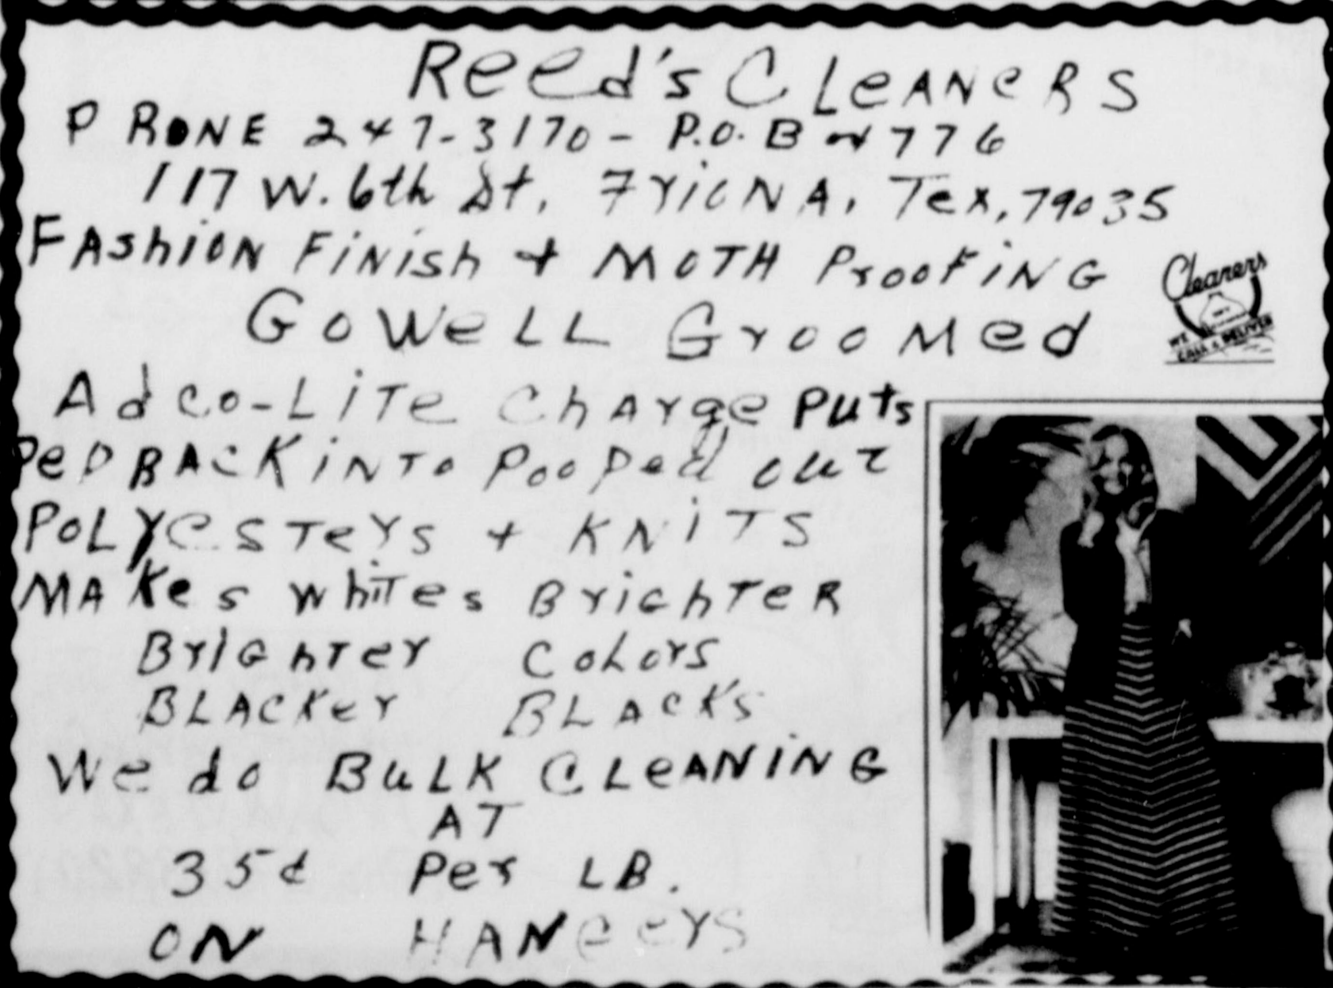 Reed's CLeANeRS
PHONE 247-3170 - P.O. Box 776
117 W. 6th St. FrioNA, Tex, 79035
FAShiON FiNish + MOTH ProoFiNG
Go WeLL GrooMed
Cleaners
WE
CALL & DELIVER
Adco-LiTe ChArge Puts
PeP BACK iNTo PooPed out
PoLyeSTerS + KNiTS
MAKes whiTes BrighTeR
BrighTer CoLors
BLACKer BLAcKs
We do BuLK CLeANiNG
AT
35¢ Per LB.
ON HANgerS